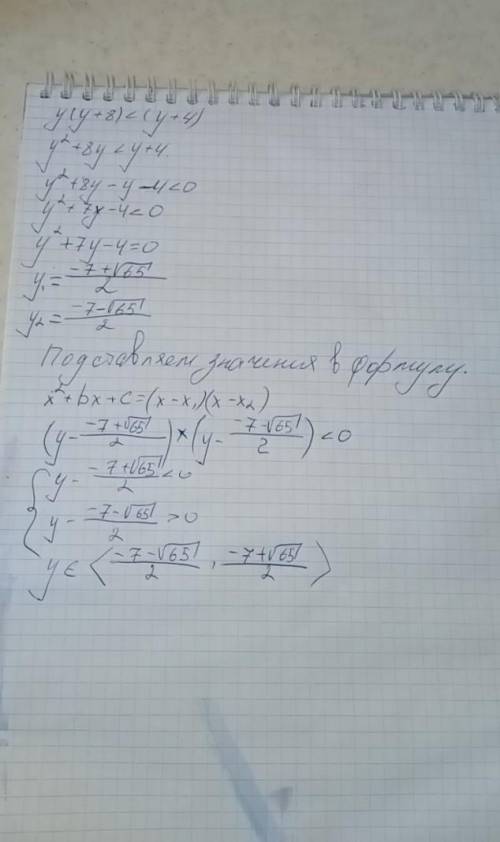 y(y+8)<(y+4)
y²+8y<y+4.
y²+8y-y-4<0
y²+7y-4<0
y²+7y-4=0
y₁=(-7+√65)/2
y₂=(-7-√65)/2
Подставляем значения в формулу.
x²+bx+c=(x-x₁)(x-x₂)
(y-(-7+√65)/2)×(y-(-7-√65)/2)<0
{y-(-7+√65)/2<0
y-(-7-√65)/2>0
y∈⟨(-7-√65)/2, (-7+√65)/2⟩